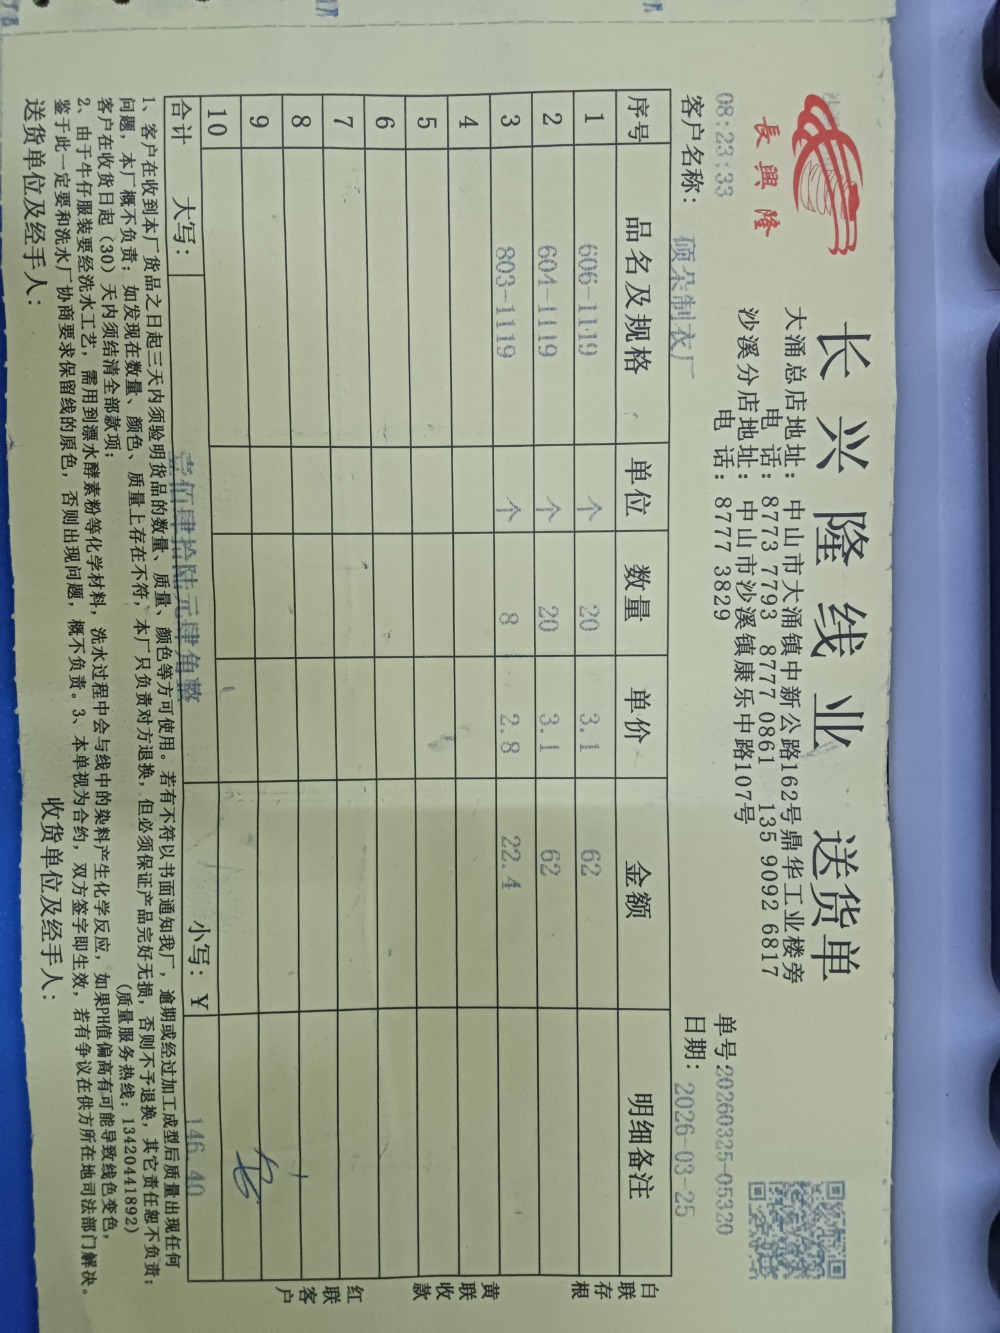 長興隆
长兴隆线业 送货单
大涌总店地址：中山市大涌镇中新公路162号鼎华工业楼旁
电 话：8773 7793 8777 0861 135 9092 6817
沙溪分店地址：中山市沙溪镇康乐中路107号
电 话：8777 3829
单号：20260325-05320
08:23:33
客户名称：硕朵制衣厂
日期：2026-03-25
序号 品名及规格 单位 数量 单价 金额 明细备注
1 606-1119 个 20 3.1 62
2 604-1119 个 20 3.1 62
3 803-1119 个 8 2.8 22.4
4
5
6
7
8
9
10
合计 大写：壹佰肆拾陆元肆角整 小写：¥ 146.40
白联存根
黄联收款
红联客户
1、客户在收到本厂货品之日起三天内须验明货品的数量、质量、颜色等方可使用。若有不符以书面通知我厂，逾期或经过加工成型后质量出现任何
问题，本厂概不负责；如发现在数量、颜色、质量上存在不符，本厂只负责对方退换，但必须保证产品完好无损，否则不予退换，其它责任恕不负责；
客户在收货日起（30）天内须结清全部款项； （质量服务热线：13420441892）
2、由于牛仔服装要经洗水工艺，需用到漂水酵素粉等化学材料，洗水过程中会与线中的染料产生化学反应，如果PH值偏高有可能导致线色变色，
鉴于此一定要和洗水厂协商要求保留线的原色，否则出现问题，概不负责。3、本单视为合约，双方签字即生效，若有争议在供方所在地司法部门解决。
送货单位及经手人： 收货单位及经手人：